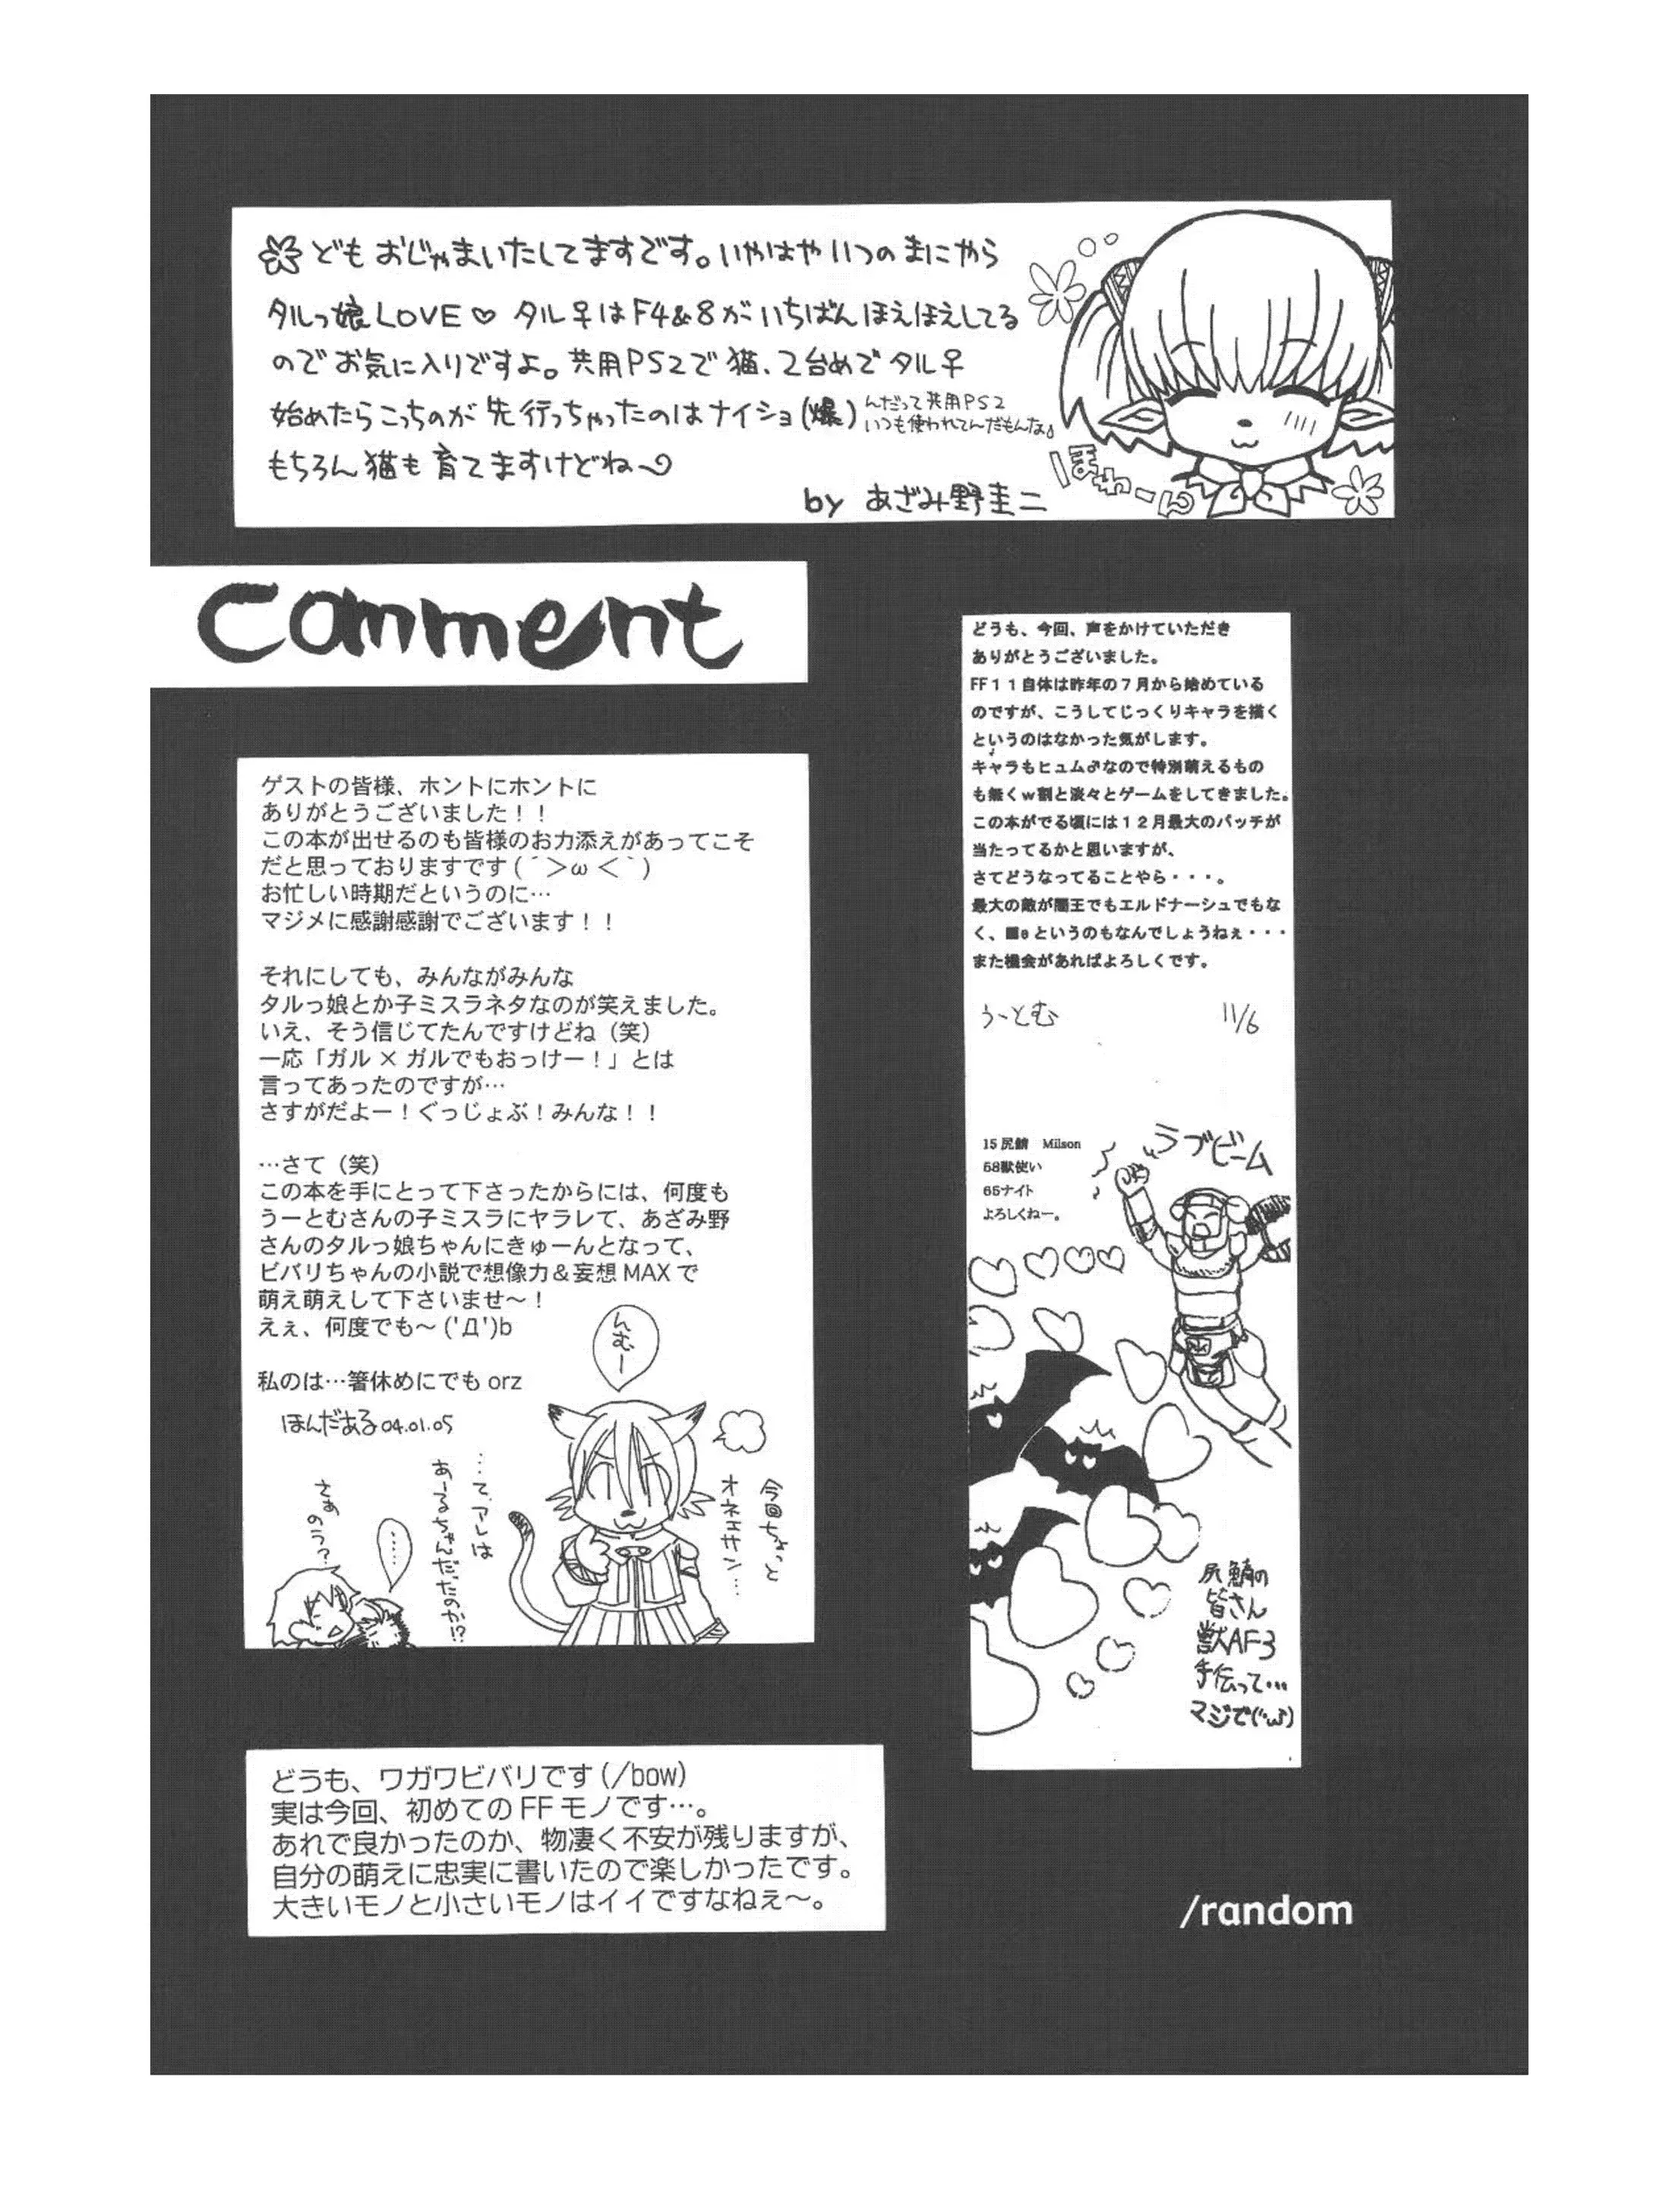 どもおじゃまいたしてますです。いやはやいつのまにやら
タルっ娘LOVE♡ タル♀はF4&8がいちばんほえほえしてる
のでお気に入りですよ。共用PS2で猫、2台めでタル♀
始めたらこっちのが先行っちゃったのはナイショ(爆)
んだって共用PS2
いつも使われてんだもんな。
もちろん猫も育てますけどね〜
by あざみ野圭二
ほわーん
Comment
ゲストの皆様、ホントにホントに
ありがとうございました！！
この本が出せるのも皆様のお力添えがあってこそ
だと思っておりますです(´＞ω＜｀)
お忙しい時期だというのに…
マジメに感謝感謝でございます！！
それにしても、みんながみんな
タルっ娘とか子ミスラネタなのが笑えました。
いえ、そう信じてたんですけどね（笑）
一応「ガル×ガルでもおっけー！」とは
言ってあったのですが…
さすがだよー！ぐっじょぶ！みんな！！
…さて（笑）
この本を手にとって下さったからには、何度も
うーとむさんの子ミスラにヤラレて、あざみ野
さんのタルっ娘ちゃんにきゅーんとなって、
ビバリちゃんの小説で想像力＆妄想MAXで
萌え萌えして下さいませ〜！
えぇ、何度でも〜('Д')b
私のは…箸休めにでもorz
ほんだある04.01.05
んむー
今回ちょっと
オネエサン…
…て、アレは
あーるちゃんだったのか!?
……
さぁのう？
どうも、今回、声をかけていただき
ありがとうございました。
FF１１自体は昨年の７月から始めている
のですが、こうしてじっくりキャラを描く
というのはなかった気がします。
キャラもヒュム♂なので特別萌えるもの
も無くｗ割と淡々とゲームをしてきました。
この本がでる頃には１２月最大のパッチが
当たってるかと思いますが、
さてどうなってることやら・・・。
最大の敵が闇王でもエルドナーシュでもな
く、■eというのもなんでしょうねぇ・・・
また機会があればよろしくです。
うーとむ 11/6
15尻鯖 Milson
58獣使い
65ナイト
よろしくねー。
ラブビーム
尻鯖の
皆さん
獣AF3
手伝って…
マジで(´・ω・)
どうも、ワガワビバリです(/bow)
実は今回、初めてのFFモノです…。
あれで良かったのか、物凄く不安が残りますが、
自分の萌えに忠実に書いたので楽しかったです。
大きいモノと小さいモノはイイですなねぇ〜。
/random